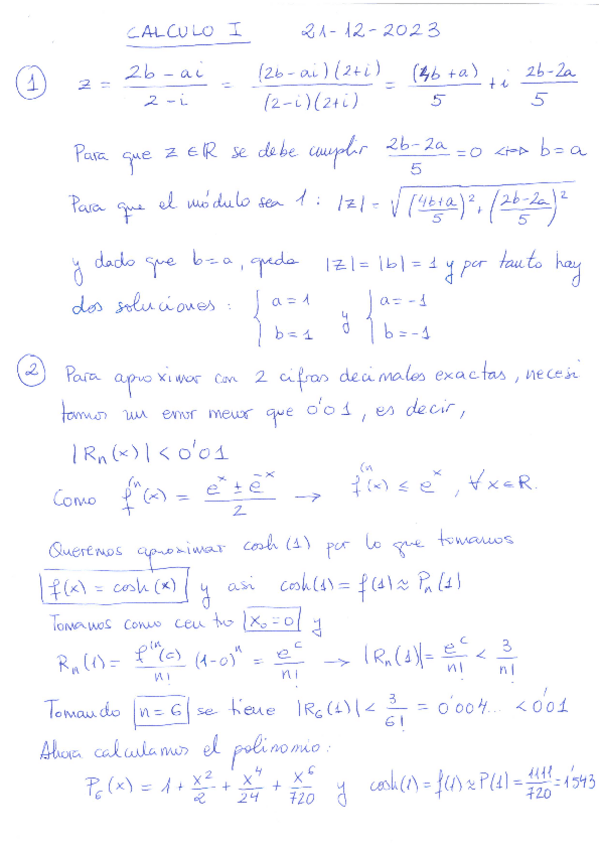 CALCULO I 21-12-2023
① z = (2b - ai)/(2 - i) = (2b - ai)(2+i)/((2-i)(2+i)) = (4b+a)/5 + i (2b-2a)/5
Para que z ∈ ℝ se debe cumplir (2b-2a)/5 = 0 ⟺ b = a
Para que el módulo sea 1 : |z| = √(((4b+a)/5)² + ((2b-2a)/5)²)
y dado que b=a, queda |z| = |b| = 1 y por tanto hay
dos soluciones : { a = 1 y { a = -1
b = 1 b = -1
② Para aproximar con 2 cifras decimales exactas, necesi
tamos un error menor que 0'01, es decir,
|Rn(x)| < 0'01
Como f⁽ⁿ(x) = (eˣ ± e⁻ˣ)/2 → f⁽ⁿ(x) ≤ eˣ, ∀x∈ℝ.
Queremos aproximar cosh(1) por lo que tomamos
f(x) = cosh(x) y asi cosh(1) = f(1) ≈ Pn(1)
Tomamos como centro x₀=0 y
Rn(1) = f⁽ⁿ(c)/n! (1-0)ⁿ = eᶜ/n! → |Rn(1)| = eᶜ/n! < 3/n!
Tomando n = 6 se tiene |R6(1)| < 3/6! = 0'004... < 0'01
Ahora calculamos el polinomio:
P₆(x) = 1 + x²/2 + x⁴/24 + x⁶/720 y cosh(1) = f(1) ≈ P(1) = 1111/720 = 1'543